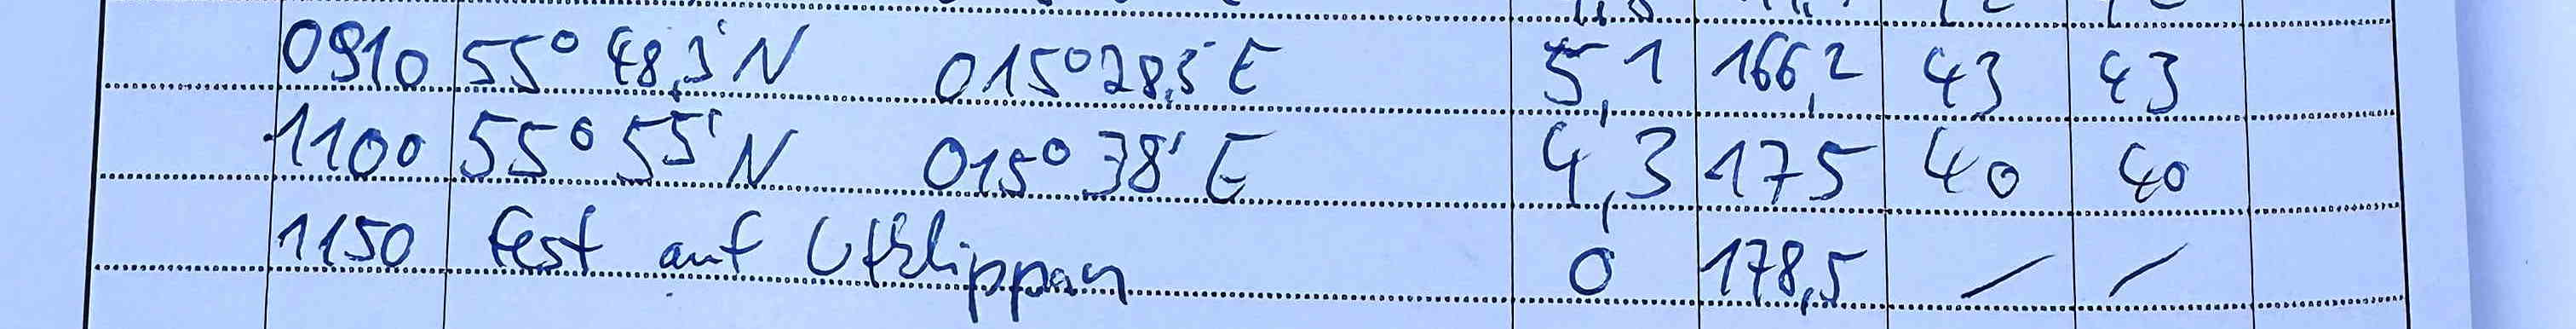 0910 55° 48,3' N 015° 28,5' E 5,1 166,2 43 43
1100 55° 55' N 015° 38' E 4,3 175 40 40
1150 fest auf Utklippan 0 178,5 / /